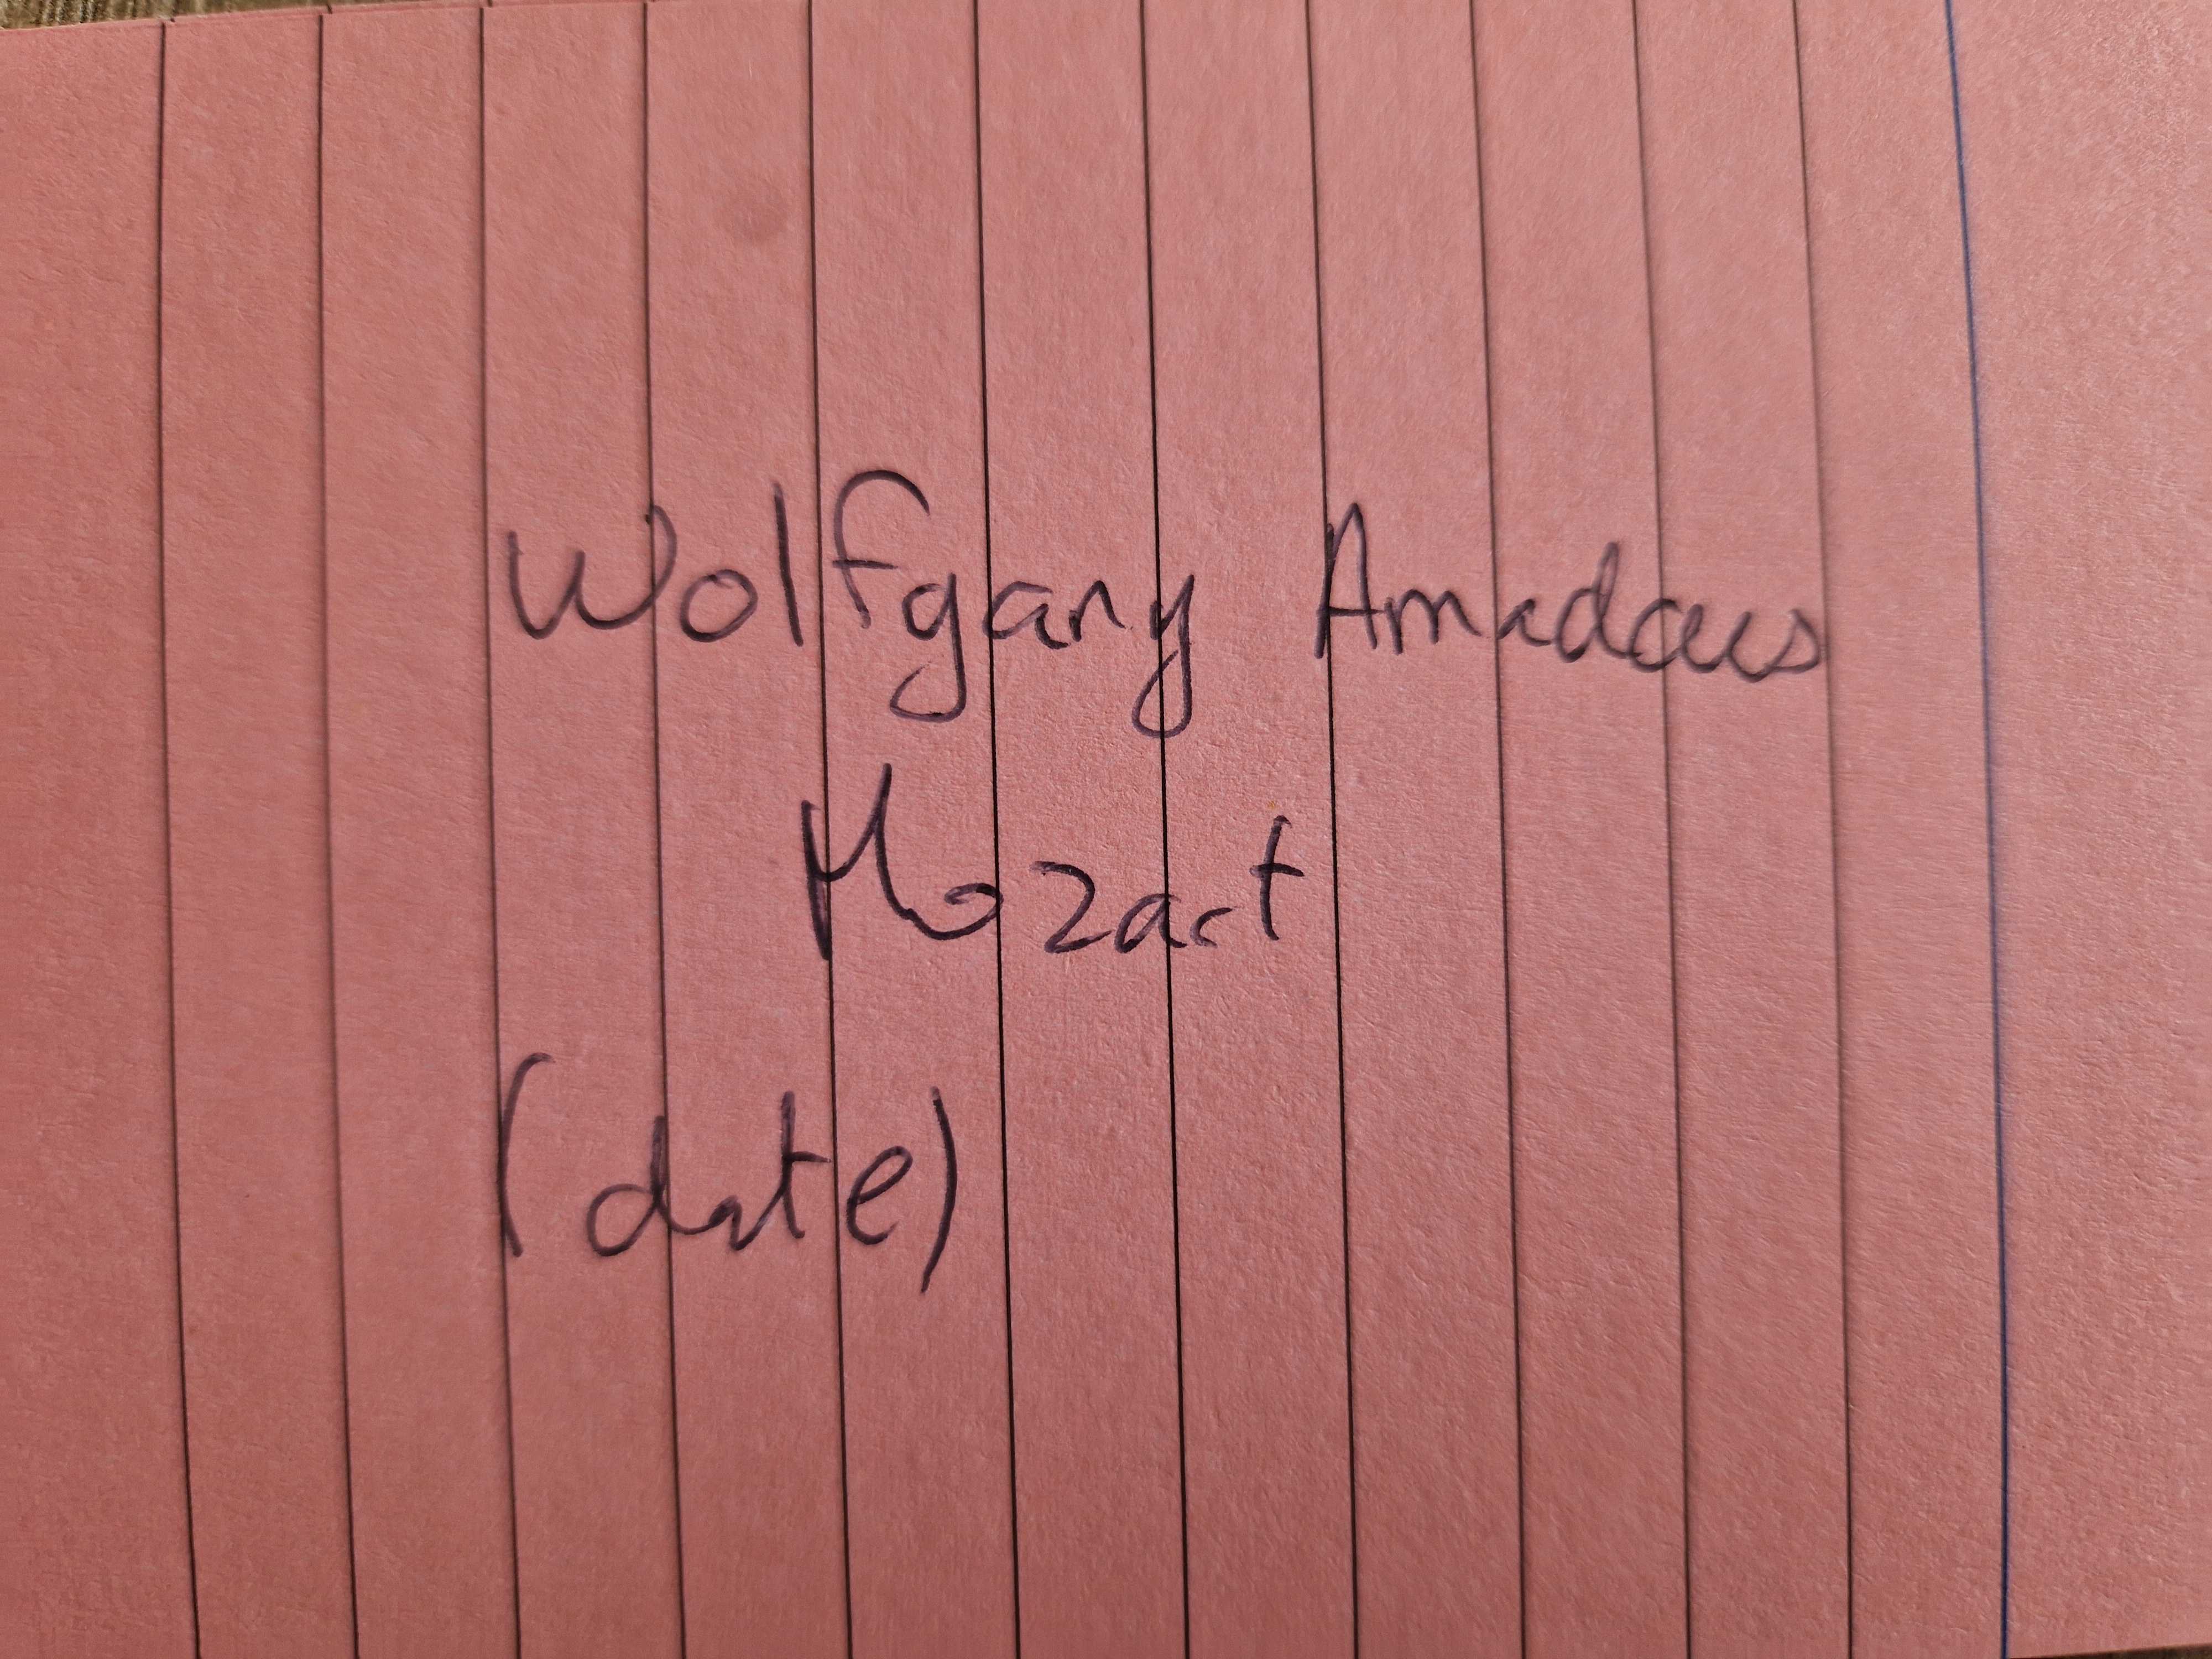 Wolfgang Amadaus
Mozart
(date)